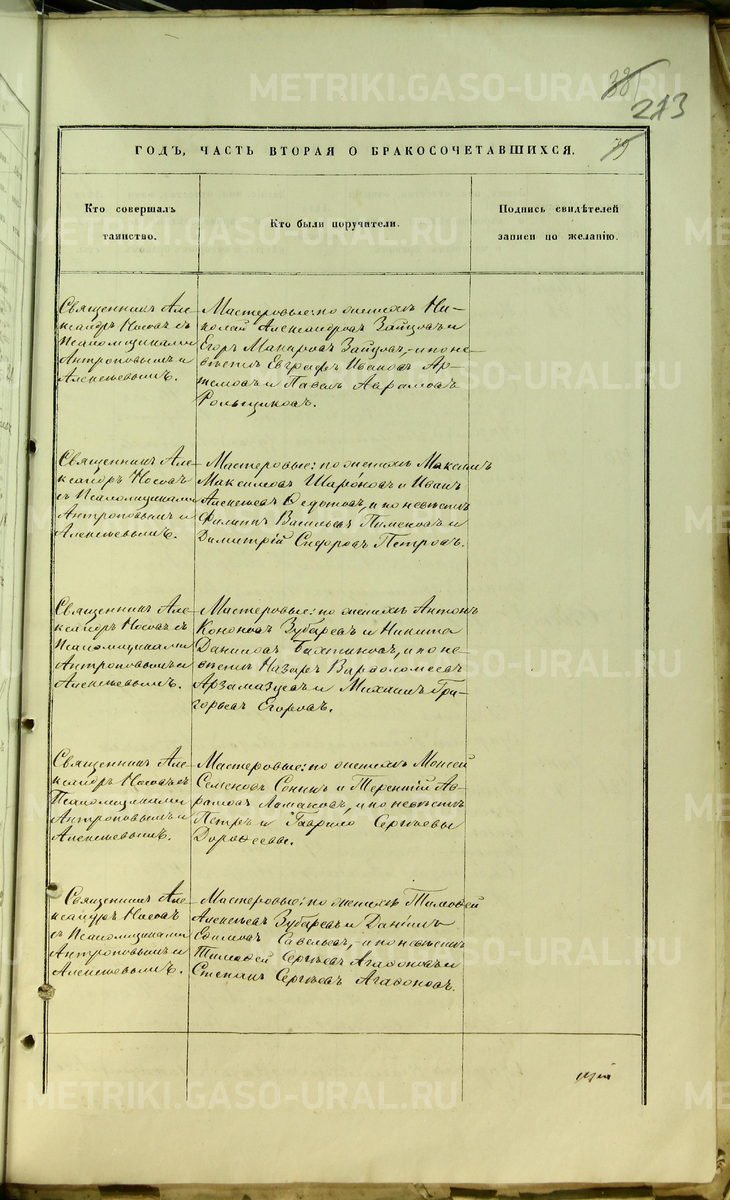 213
ГОДЪ, ЧАСТЬ ВТОРАЯ О БРАКОСОЧЕТАВШИХСЯ.
Кто совершалъ
таинство.
Кто были поручатели.
Подпись свидѣтелей
записи по желанію.
Священникъ Але-
ксандръ Носовъ съ
Псаломщиками
Антроповымъ и
Алексѣевымъ.
Мастеровые: по женихѣ Ни-
колай Александровъ Зайцовъ и
Егоръ Макаровъ Зайцовъ, и по не-
вѣстѣ Евграфъ Ивановъ Ар-
темовъ и Павелъ Аврамовъ
Рольщиковъ.
Священникъ Але-
ксандръ Носовъ
съ Псаломщиками
Антроповымъ и
Алексѣевымъ.
Мастеровые: по женихѣ Максимъ
Максимовъ Шароновъ и Иванъ
Алексѣевъ Ѳедотовъ, и по невѣстѣ
Филиппъ Васильевъ Пименовъ и
Димитрій Сидоровъ Петровъ.
Священникъ Але-
ксандръ Носовъ съ
Псаломщиками
Антроповымъ и
Алексѣевымъ.
Мастеровые: по женихѣ Антонъ
Кононовъ Зубаревъ и Никита
Даниловъ Бахтиновъ, и по не-
вѣстѣ Назаръ Варѳоломеевъ
Арзамазцевъ и Михаилъ Гри-
горьевъ Егоровъ.
Священникъ Але-
ксандръ Носовъ съ
Псаломщиками
Антроповымъ и
Алексѣевымъ.
Мастеровые: по женихѣ Моисей
Семеновъ Сонинъ и Терентій Ав-
рамовъ Ломаковъ, и по невѣстѣ
Петръ и Гаврило Сергѣевы
Дороѳеевы.
Священникъ Але-
ксандръ Носовъ
съ Псаломщиками
Антроповымъ и
Алексѣевымъ.
Мастеровые: по женихѣ Тимоѳей
Алексѣевъ Зубаревъ и Даніилъ
Ефимовъ Савельевъ, и по невѣстѣ
Тимоѳей Сергѣевъ Агаѳоновъ и
Степанъ Сергѣевъ Агаѳоновъ.
METRIKI.GASO-URAL.RU